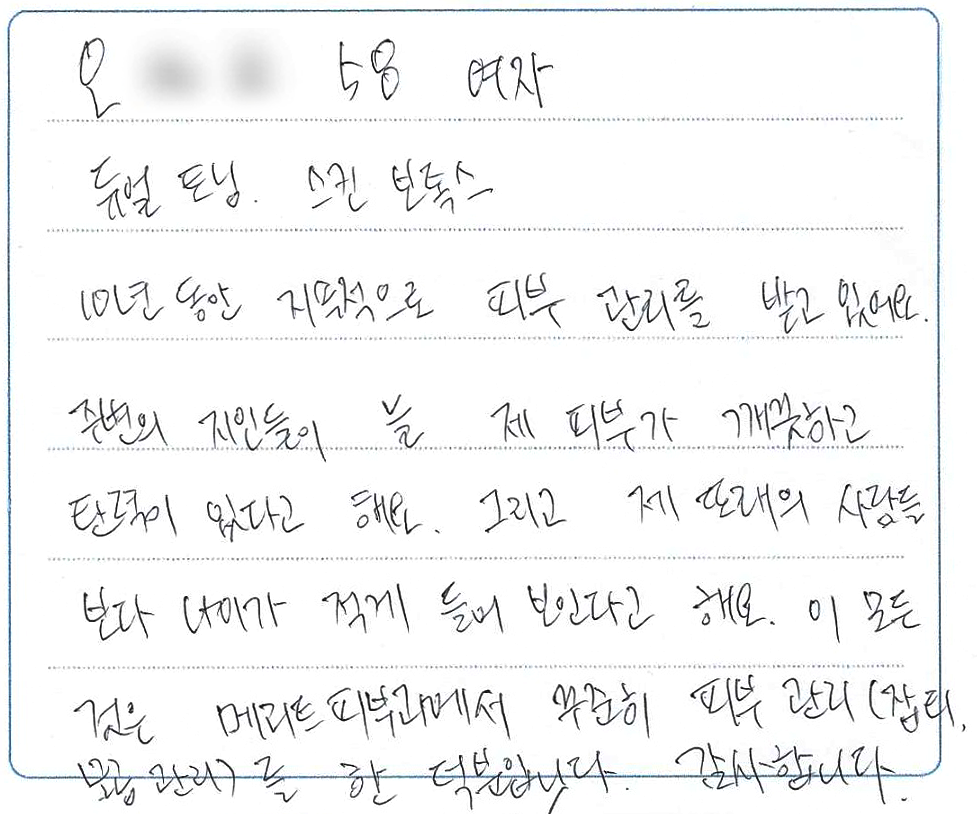 오 58 여자
듀얼 토닝. 스킨 보톡스
10년 동안 지속적으로 피부 관리를 받고 있어요.
주변의 지인들이 늘 제 피부가 깨끗하고
탄력이 있다고 해요. 그리고 제 또래의 사람들
보다 나이가 적게 들어 보인다고 해요. 이 모든
것은 메리트피부과에서 꾸준히 피부 관리 (잡티,
모공 관리)를 한 덕분입니다. 감사합니다.